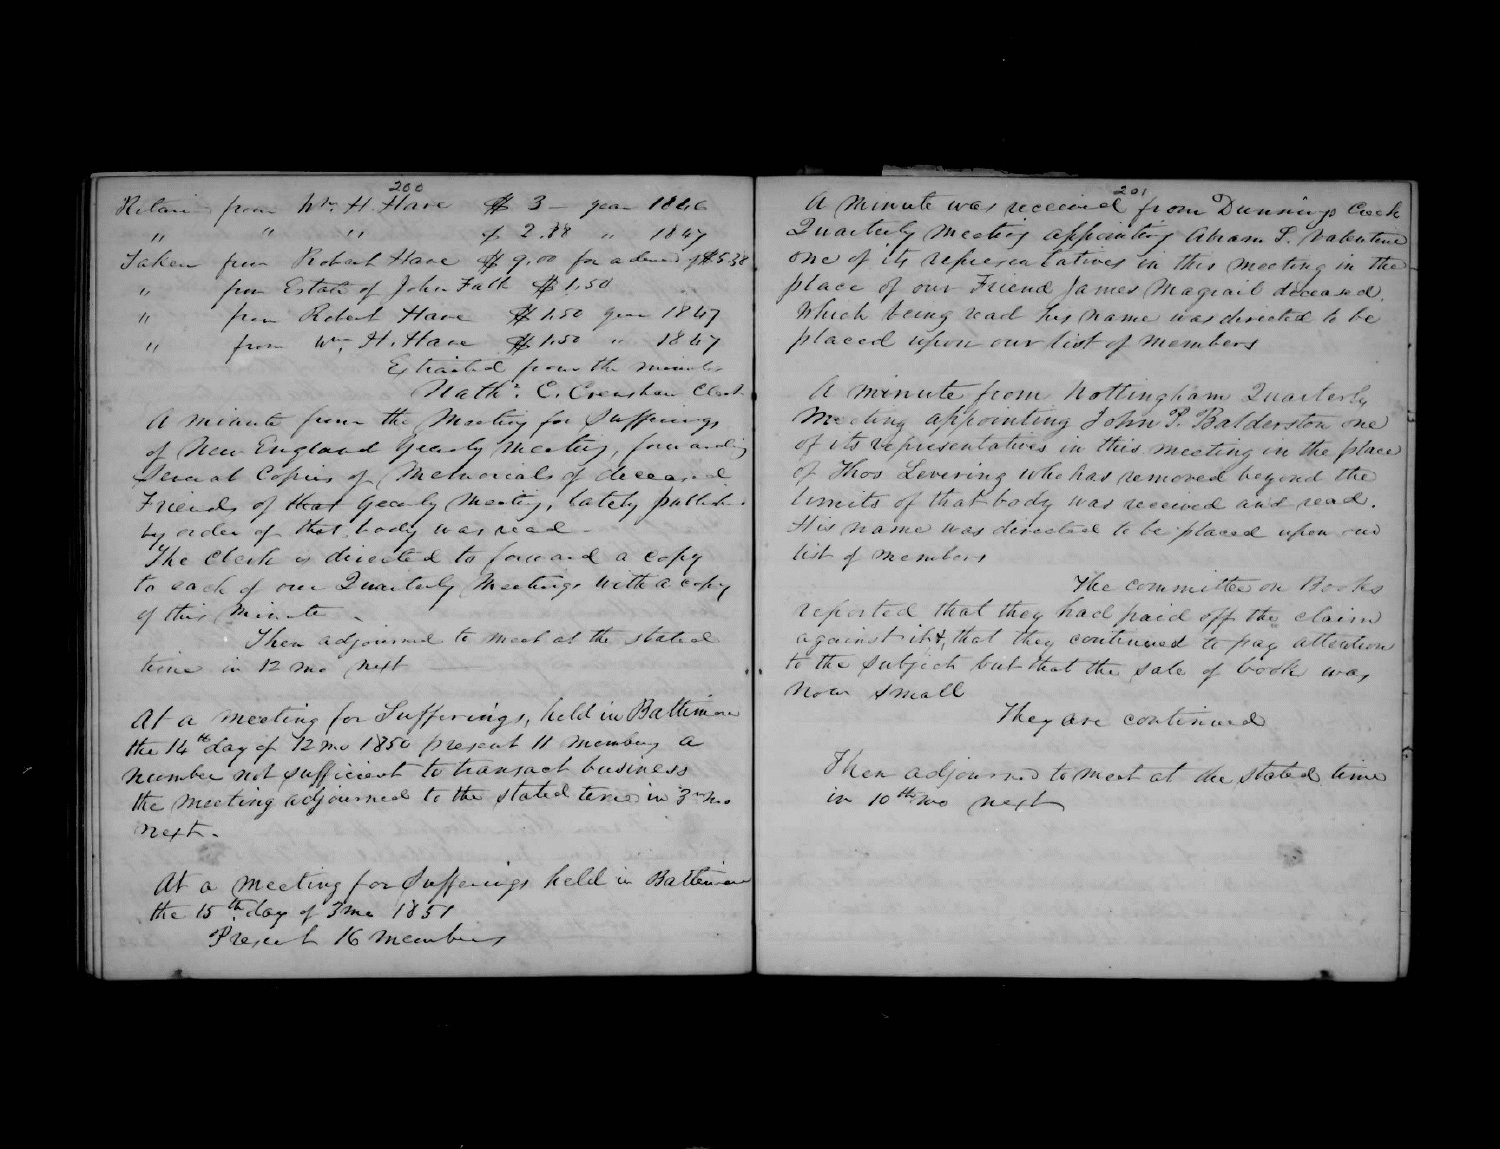 200
from Wm. H. Hare $ 3 — year 1846
" " " $ 2.88 " 1847
Taken from Robert Hare $ 9.00 for a demd of $5.38
" from Estate of John Falk $1.50
" from Robert Hare $1.50 year 1847
" from Wm. H. Hare $1.50 " 1847
Extracted from the minutes
Nathl. C. Crenshaw Clerk
A minute from the Meeting for Sufferings
of New England Yearly Meeting, forwarding
Several Copies of Memorials of deceased
Friends of that Yearly Meeting, lately publish
by order of that body was read —
The Clerk is directed to forward a copy
to each of our Quarterly Meetings with a copy
of this Minute.
Then adjourned to meet at the stated
time in 12 mo next
At a meeting for Sufferings, held in Baltimore
the 14th day of 12 mo 1850 present 11 members a
number not sufficient to transact business
the meeting adjourned to the stated time in 3rd mo
next.
At a meeting for Sufferings held in Baltimore
the 15th day of 3 mo 1851
Present 16 members
201
A minute was received from Dunnings Creek
Quarterly Meeting appointing Abram P. Valentine
one of its representatives in this meeting in the
place of our Friend James Magrail deceased.
Which being read his name was directed to be
placed upon our list of members
A minute from Nottingham Quarterly
Meeting appointing John P. Balderston one
of its representatives in this meeting in the place
of Thos Levering who has removed beyond the
limits of that body was received and read.
His name was directed to be placed upon our
list of members
The committee on Books
reported that they had paid off the claim
against it &, that they continued to pay attention
to the subject but that the sale of books was
now small
They are continued
Then adjourned to meet at the stated time
in 10th mo next